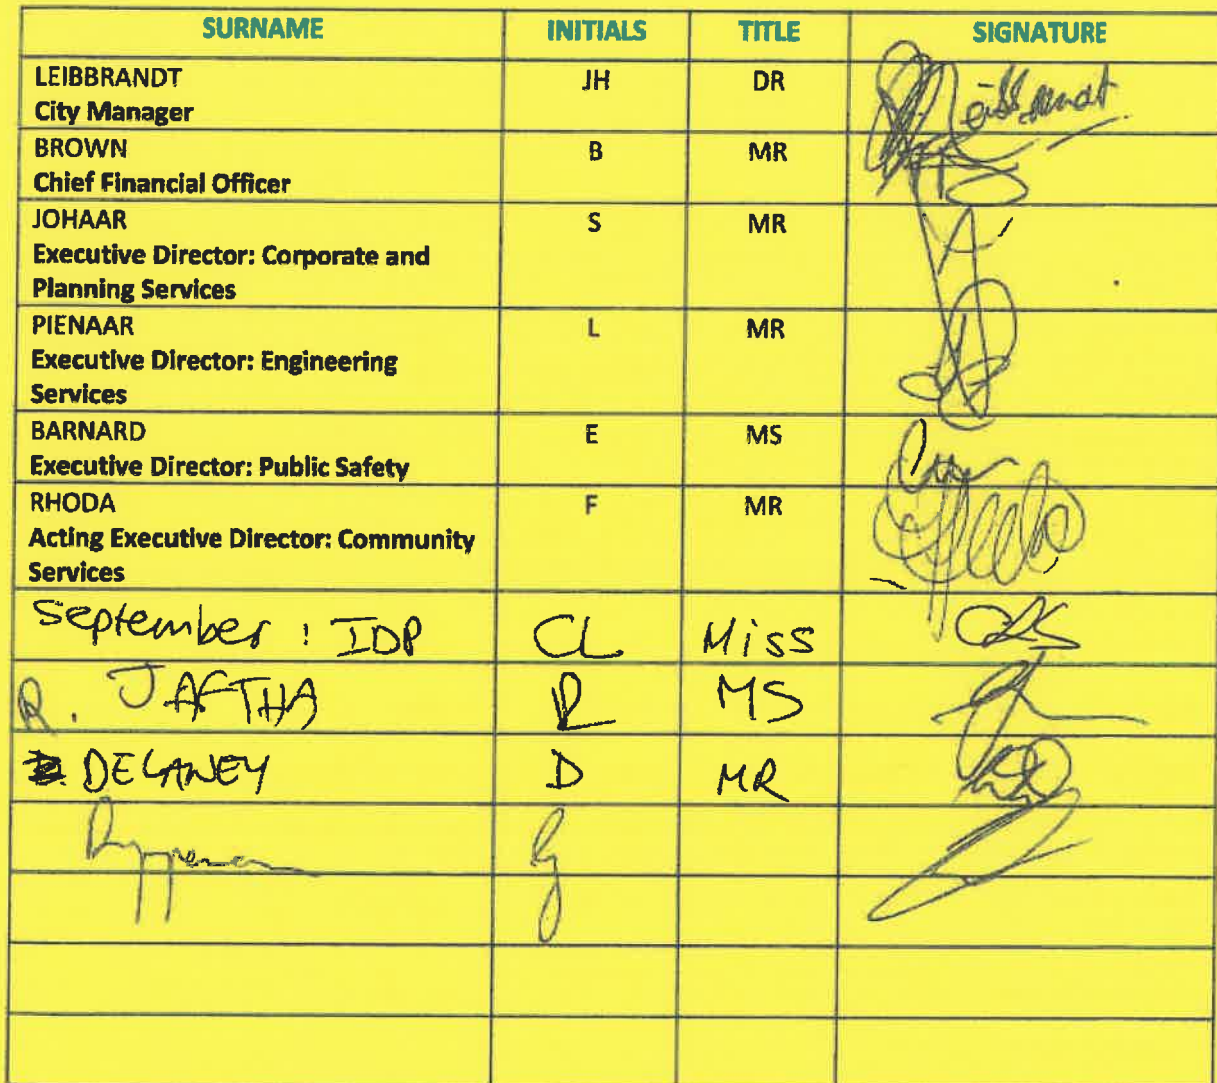 SURNAME INITIALS TITLE SIGNATURE
LEIBBRANDT JH DR
City Manager
BROWN B MR
Chief Financial Officer
JOHAAR S MR
Executive Director: Corporate and
Planning Services
PIENAAR L MR
Executive Director: Engineering
Services
BARNARD E MS
Executive Director: Public Safety
RHODA F MR
Acting Executive Director: Community
Services
September : IDP CL Miss
R. JAFTHA R MS
DELANEY D MR
G